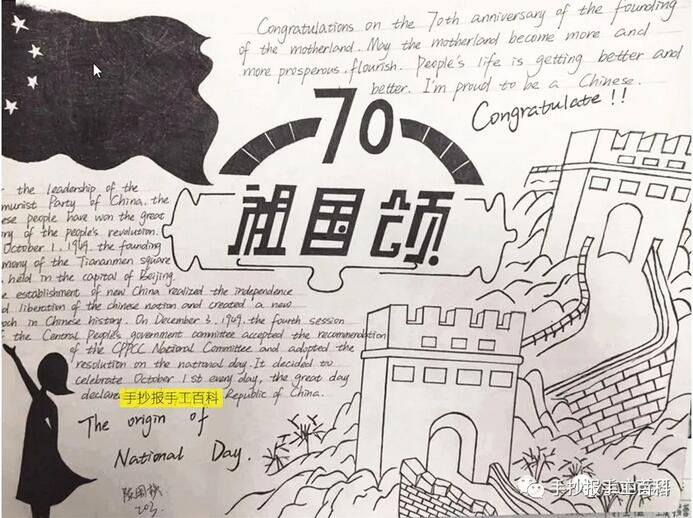 Congratulations on the 70th anniversary of the founding
of the motherland. May the motherland become more and
more prosperous, flourish. People's life is getting better and
better. I'm proud to be a Chinese.
Congratulate!!
70
祖国颂
the leadership of the
Party of China, the
people have won the great
of the people's revolution.
October 1, 1949, the founding
of the Tiananmen square
held in the capital of Beijing.
establishment of new China realized the independence
liberation of the chinese nation and created a new
in Chinese history. On December 3, 1949, the fourth session
the Central People's government committee accepted the recommendation
of the CPPCC National Committee and adopted the
resolution on the national day. It decided to
celebrate October 1st every day, the great day
手抄报手工百科 Republic of China.
The origin of
National Day.
手抄报手工百科